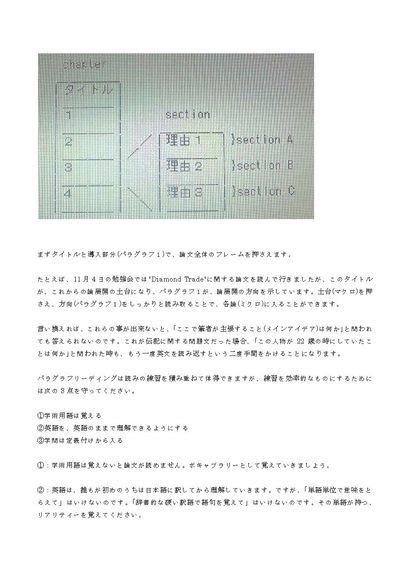 chapter
タイトル
1
2
3
4
section
理由1 }section A
理由2 }section B
理由3 }section C
まずタイトルと導入部分(パラグラフ1)で、論文全体のフレームを押さえます。
たとえば、11月4日の勉強会では"Diamond Trade"に関する論文を読んで行きましたが、このタイトル
が、これからの論展開の土台になり、パラグラフ1が、論展開の方向を示しています。土台(マクロ)を押
さえ、方向(パラグラフ1)をしっかりと読み取ることで、各論(ミクロ)に入ることができます。
言い換えれば、これらの事が出来ないと、「ここで筆者が主張すること(メインアイデア)は何か」と問われ
ても答えられないのです。これが伝記に関する問題文だった場合、「この人物が 22 歳の時にしていたこ
とは何か」と問われた時も、もう一度英文を読み返すという二度手間をかけることになります。
パラグラフリーディングは読みの練習を積み重ねて体得できますが、練習を効率的なものにするために
は次の3点を守ってください。
①学術用語は覚える
②英語を、英語のままで理解できるようにする
③学問は定義付けから入る
①：学術用語は覚えないと論文が読めません。ボキャブラリーとして覚えていきましょう。
②：英語は、誰もが初めのうちは日本語に訳してから理解していきます。ですが、「単語単位で意味をと
らえて」はいけないのです。「辞書的な硬い訳語で語句を覚えて」はいけないのです。その単語が持つ、
リアリティーを覚えてください。